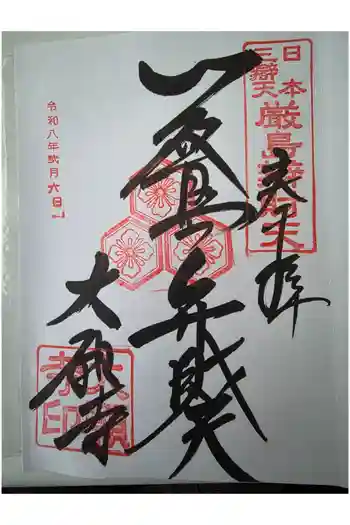 日本
三辯天
厳島辯財天
奉拝
厳島弁財天
大願寺
大願
寺印
令和八年弐月六日